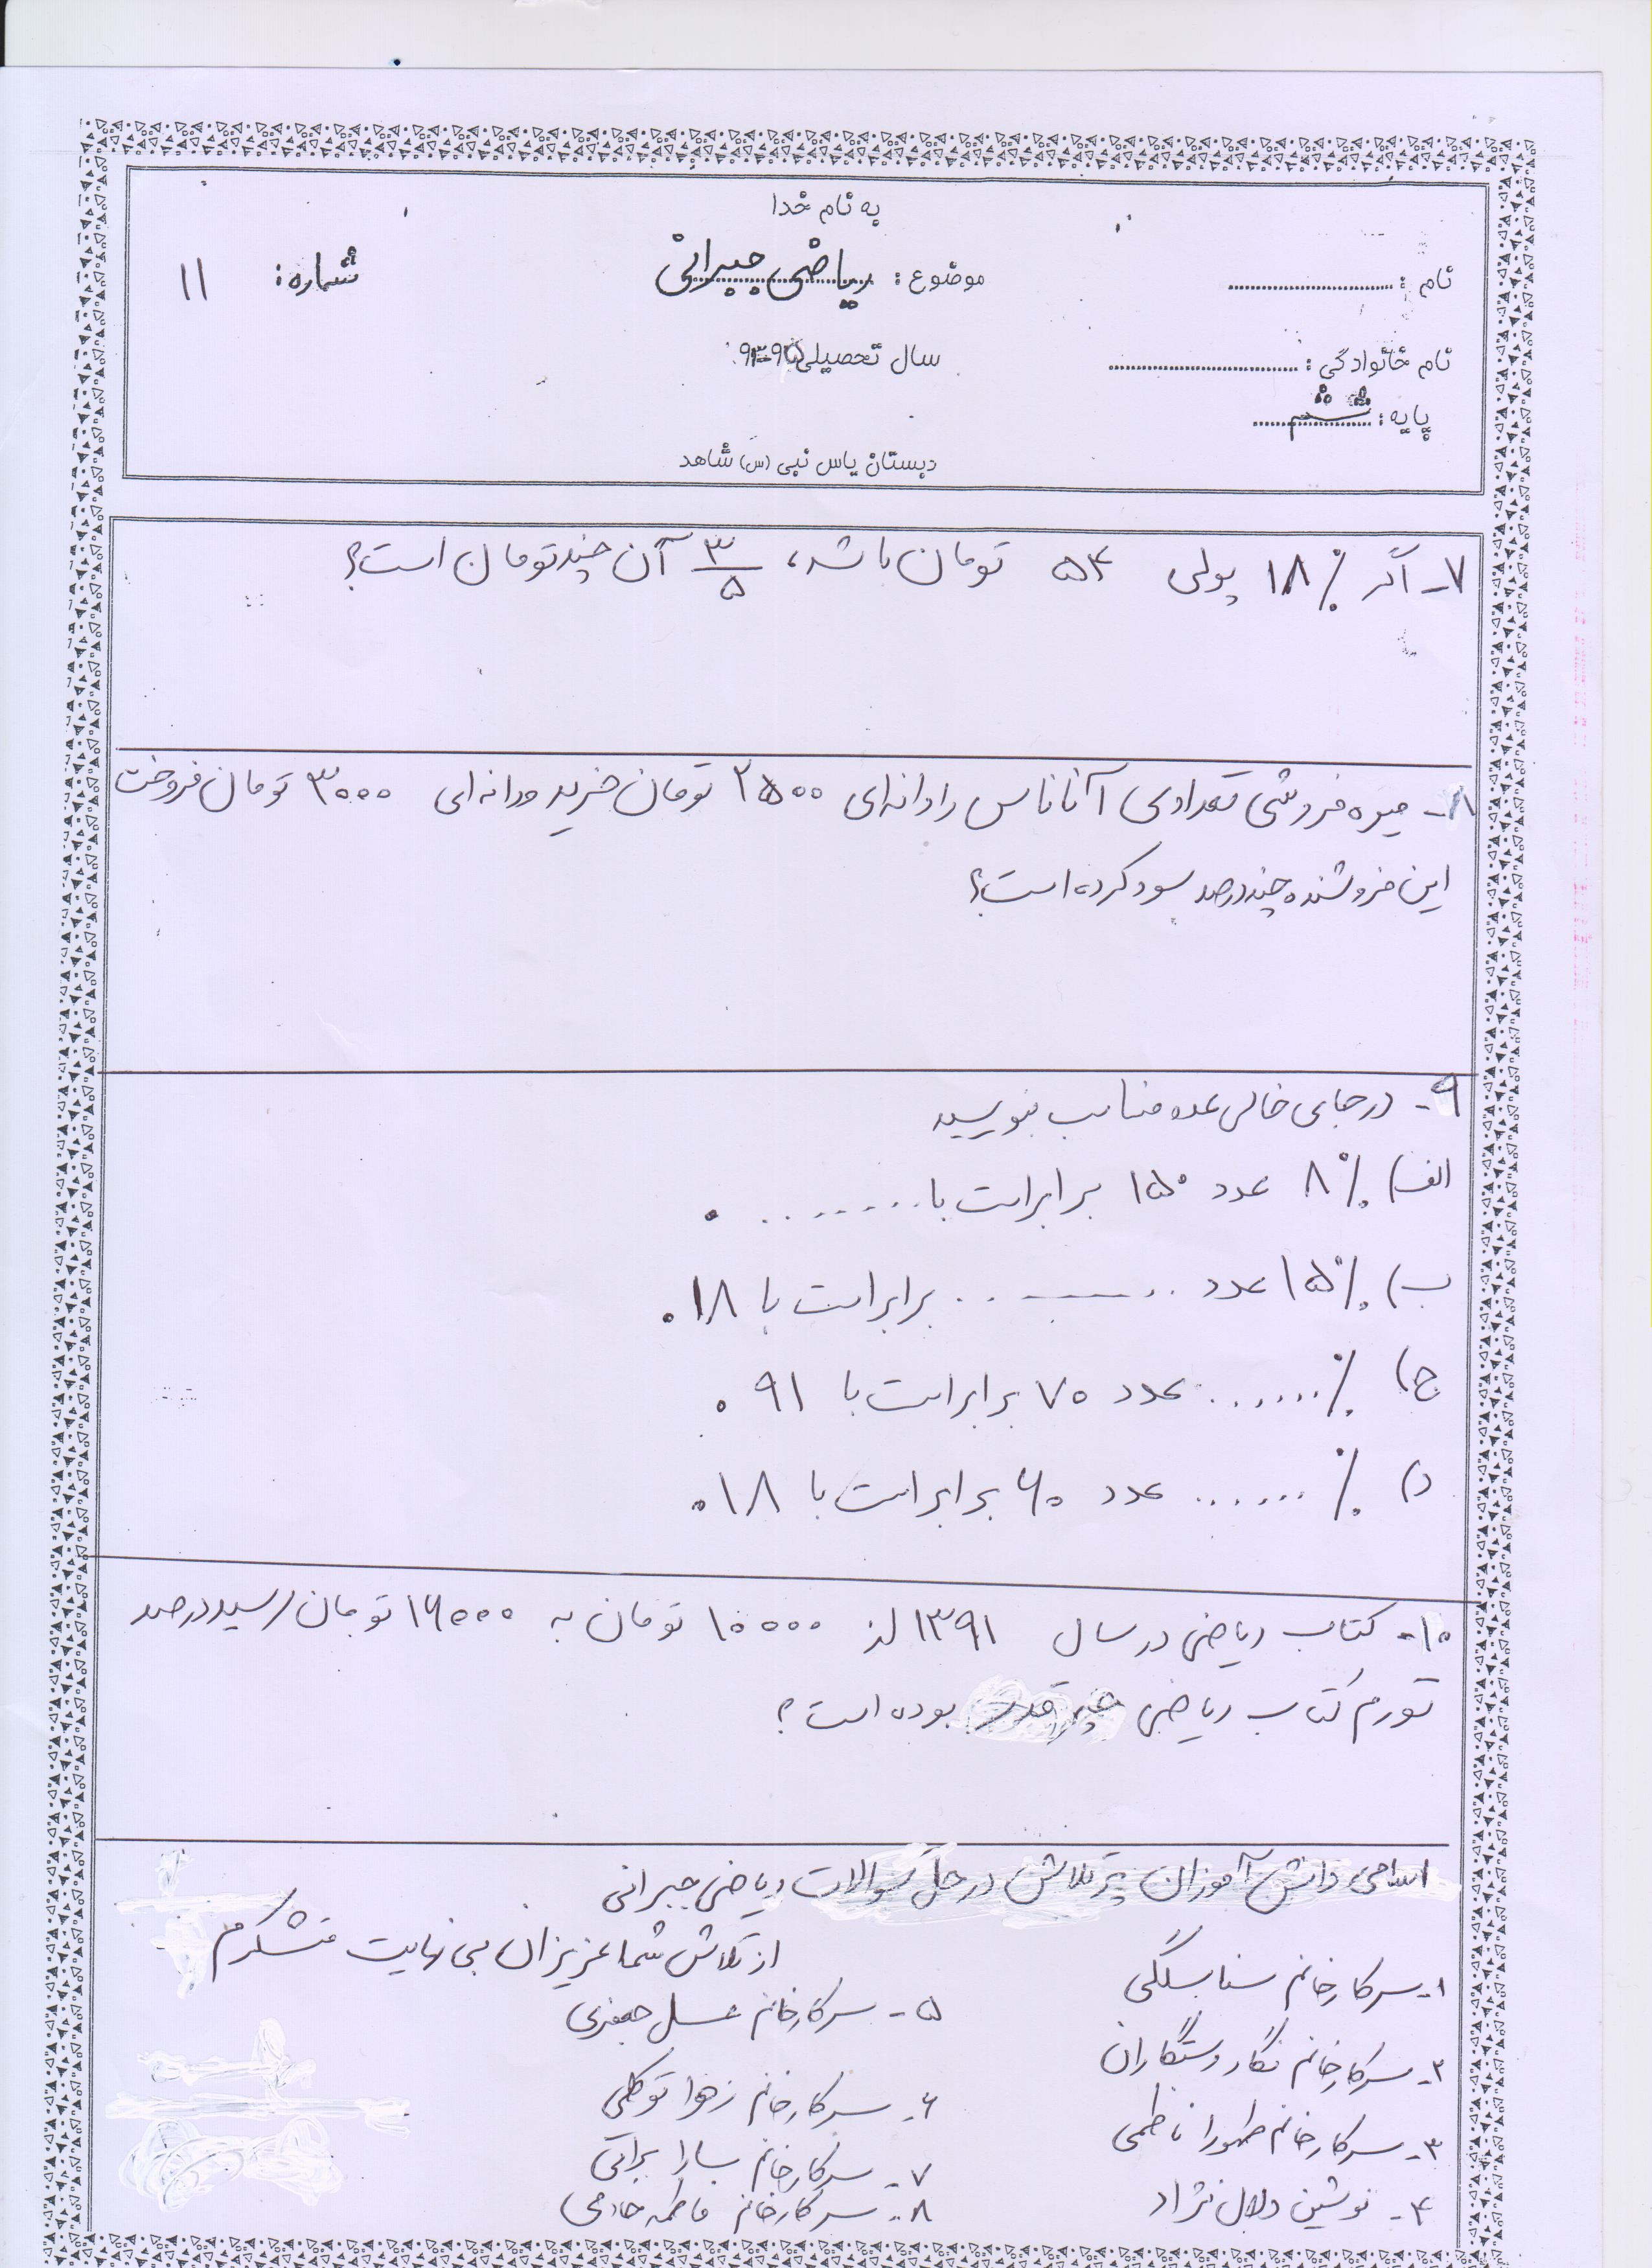 به نام خدا
نام : ............................
موضوع : ریاضی جبرانی
شماره: ۱۱
نام خانوادگی : ................................
سال تحصیلی
پایه : ششم
دبستان یاس نبی (س) شاهد
۷- اگر ٪۱۸ پولی ۵۴ تومان باشد، ۳/۵ آن چند تومان است؟
۸- میوه فروشی تعدادی آناناس را دانه‌ای ۲۵۰۰ تومان خرید و دانه‌ای ۳۰۰۰ تومان فروخت
این فروشنده چند درصد سود کرده است؟
۹- در جای خالی عدد مناسب بنویسید
الف) ٪۸ عدد ۱۵۰ برابر است با ........ .
ب) ٪۱۵ عدد ........ برابر است با ۱۸.
ج) ٪...... عدد ۷۰ برابر است با ۹۱ .
د) ٪...... عدد ۶۰ برابر است با ۱۸.
۱۰- کتاب ریاضی در سال ۱۳۹۱ از ۱۰۰۰۰ تومان به ۱۶۰۰۰ تومان رسید درصد
تورم کتاب ریاضی بوده است؟
اسامی دانش آموزان پر تلاش در حل سوالات ریاضی جبرانی
از تلاش شما عزیزان بی نهایت متشکرم
۱- سرکار خانم سنا سلگی
۲- سرکار خانم نگار رستگاران
۳- سرکار خانم طهورا ناظمی
۴- نوشین دلال نژاد
۵- سرکار خانم عسل جعفری
۶- سرکار خانم زهرا توکلی
۷- سرکار خانم سارا براتی
۸- سرکار خانم فاطمه خادمی